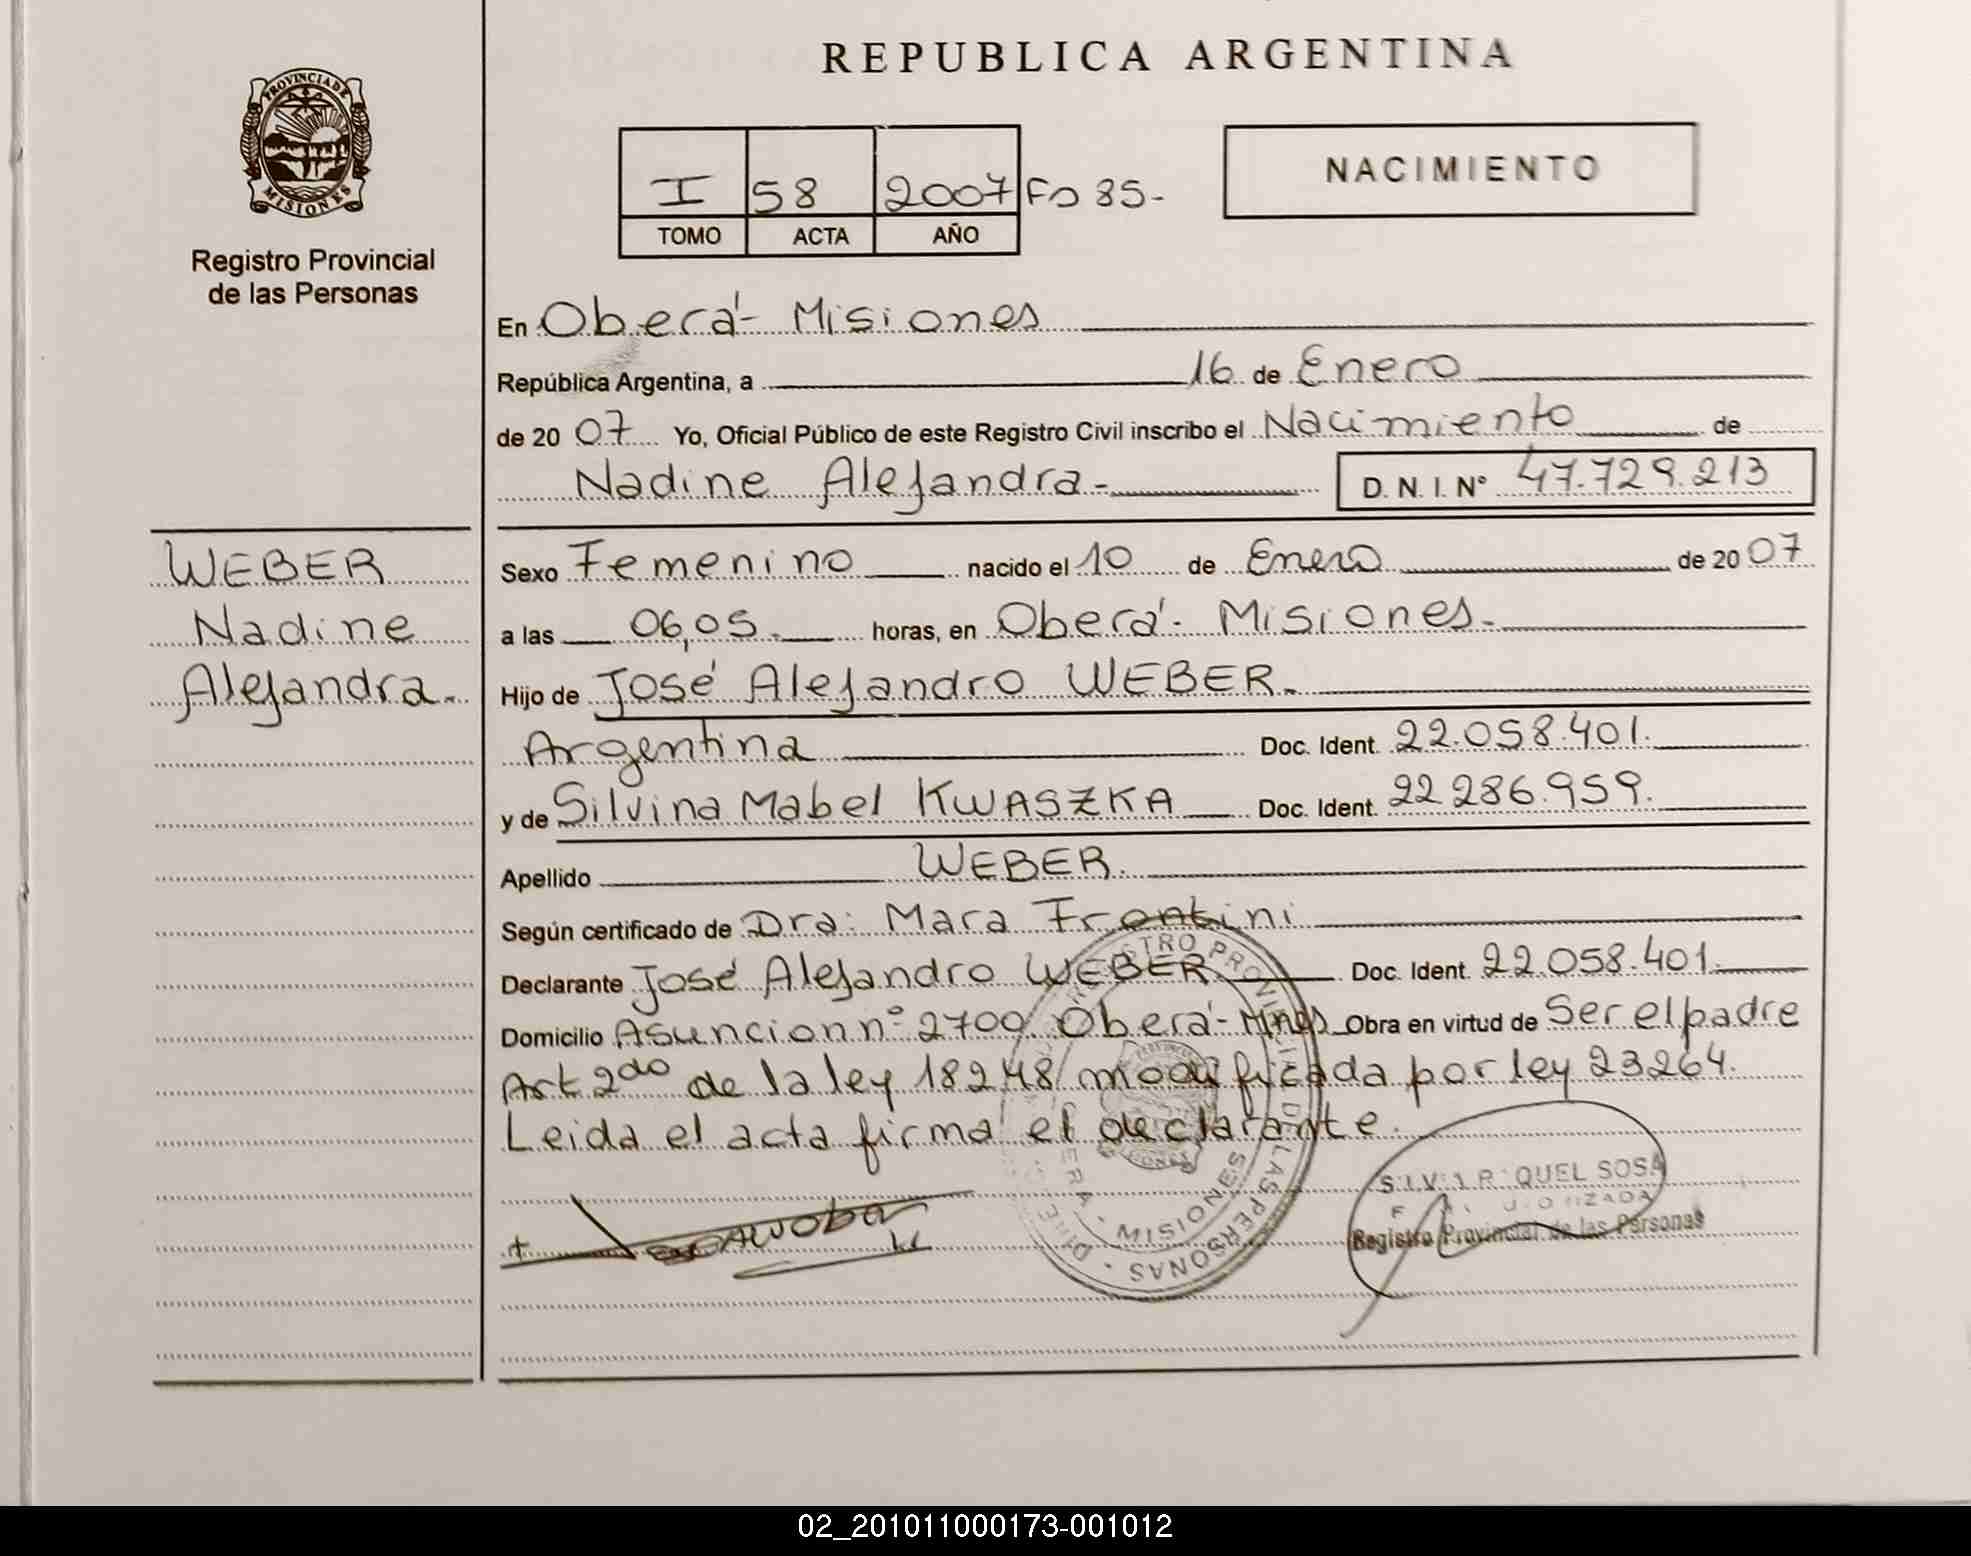 REPUBLICA ARGENTINA
PROVINCIA DE MISIONES
Registro Provincial
de las Personas
I 58 2007 Fo 85-
TOMO ACTA AÑO
NACIMIENTO
En Oberá - Misiones
República Argentina, a 16 de Enero
de 2007 Yo, Oficial Público de este Registro Civil inscribo el Nacimiento de
Nadine Alejandra - D. N. I. Nº 47.729.213
WEBER
Nadine
Alejandra.
Sexo Femenino nacido el 10 de Enero de 2007
a las 06,05. horas, en Oberá - Misiones.
Hijo de José Alejandro WEBER.
Argentina Doc. Ident. 22.058.401.
y de Silvina Mabel KWASZKA Doc. Ident. 22 286.959.
Apellido WEBER.
Según certificado de Dra: Mara Frontini
Declarante José Alejandro WEBER Doc. Ident. 22 058.401.
Domicilio Asuncion nº 2700 Oberá - Mnes Obra en virtud de Ser el padre
Art 2do de la ley 18248 modificada por ley 23264.
Leida el acta firma el declarante.
REGISTRO PROVINCIAL DE LAS PERSONAS
MISIONES
QUEL SOSA
Registro Provincial de las Personas
02_201011000173-001012